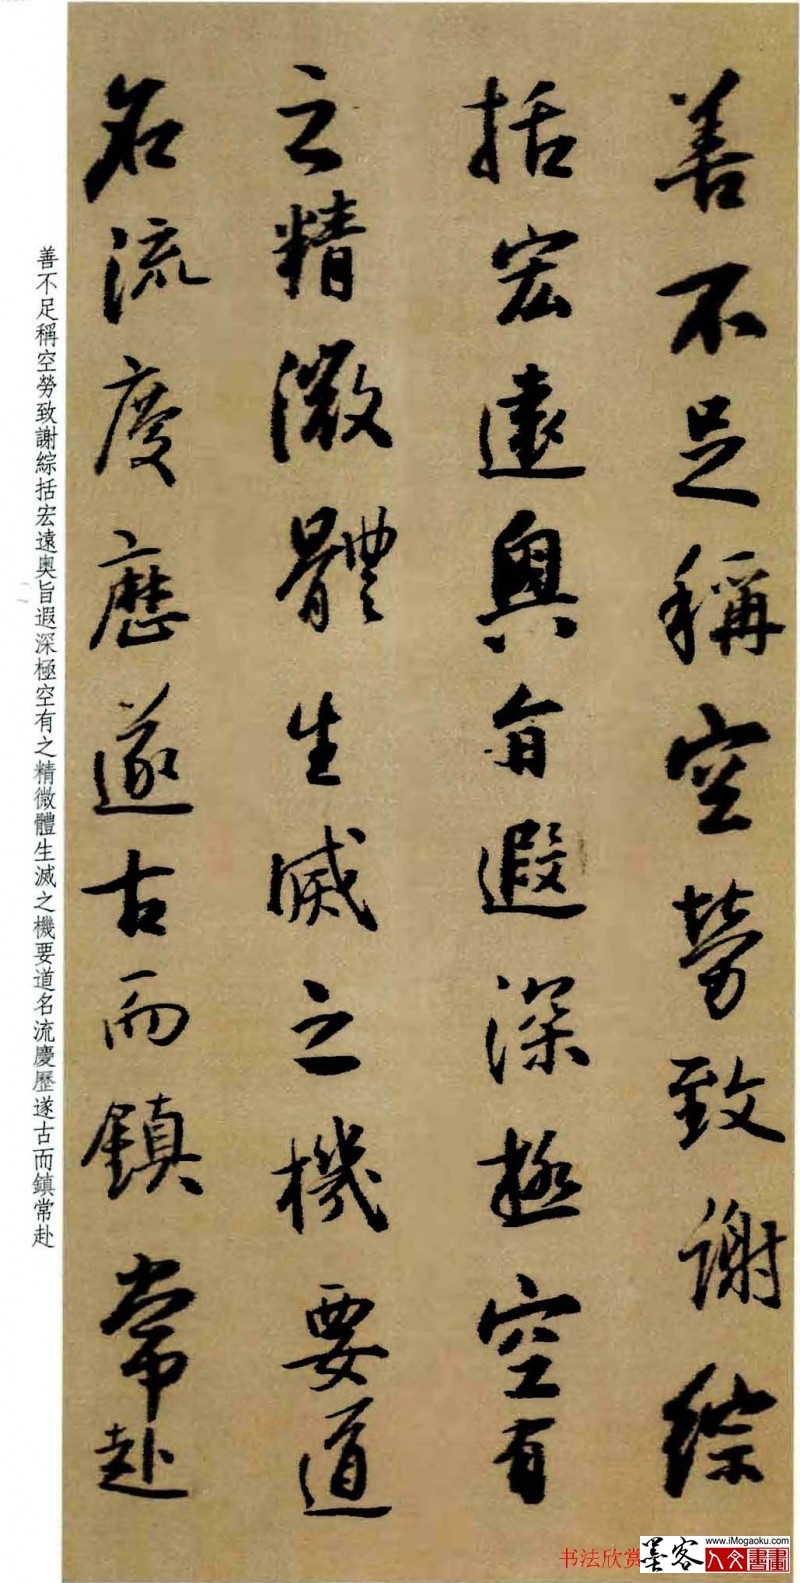 善不足稱空勞致謝綜
括宏遠奧旨遐深極空有
之精微體生滅之機要道
名流慶歷遂古而鎮常赴
善不足稱空勞致謝綜括宏遠奧旨遐深極空有之精微體生滅之機要道名流慶歷遂古而鎮常赴
书法欣赏
墨客
www.iMogaoku.com
人文書畫